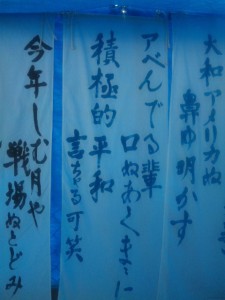 大和アメリカぬ
鼻ゆ明かす
アベんでる輩
口ぬあくまゝに
積極的平和
言ちる可笑
今年しむ月や
戦場ぬとどみ